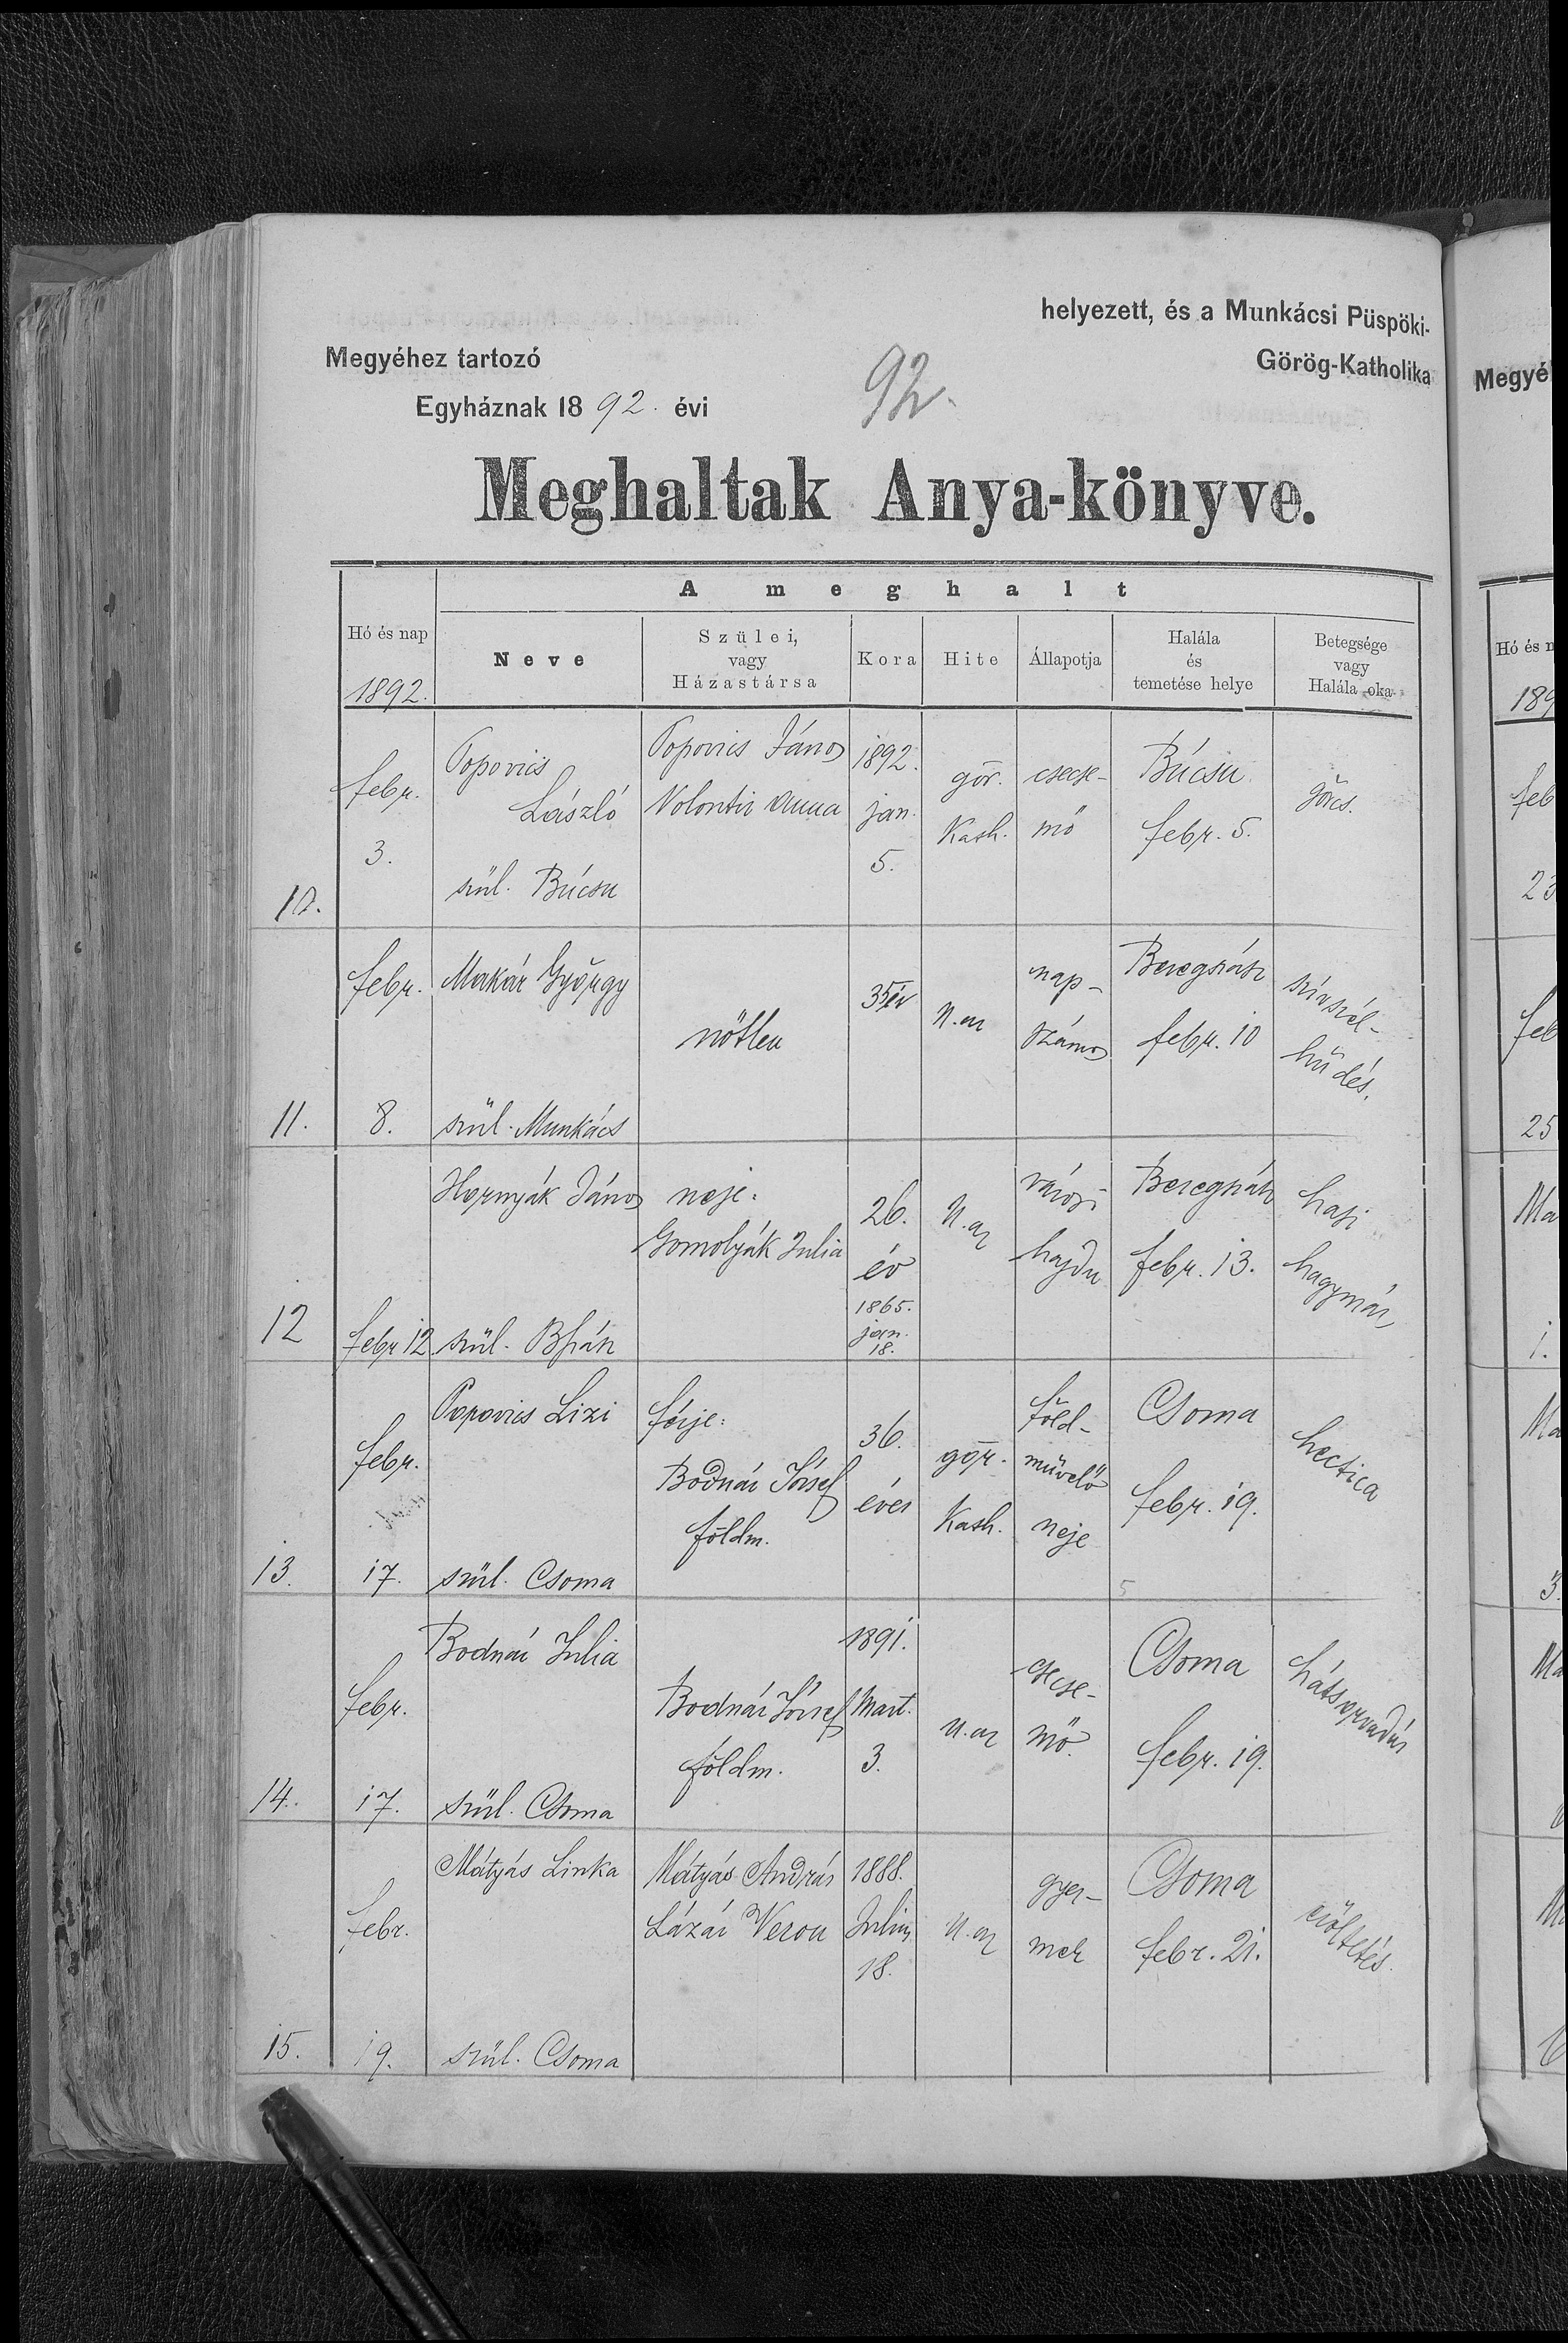 helyezett, és a Munkácsi Püspöki-
Megyéhez tartozó
Görög-Katholika
Egyháznak 1892. évi
92.
Meghaltak Anya-könyve.
A meghalt
Hó és nap
1892.
Neve
Szülei,
vagy
Házastársa
Kora
Hite
Állapotja
Halála
és
temetése helye
Betegsége
vagy
Halála oka
10.
febr.
3.
Popovics
László
szül. Búcsu
Popovics János
Volontir Anna
1892.
jan.
5.
gör.
Kath.
csecse-
mö
Búcsu
febr. 5.
görcs.
11.
febr.
8.
Makár György
szül. Munkács
nőtlen
35 év
U. az
nap-
számos
Beregszász
febr. 10
szívszél-
hűdés.
12
febr 12
Hornyák János
szül. Bszász
neje:
Gomolyák Julia
26.
év
1865.
jan.
18.
U. az
városi
hajdu
Beregszász
febr. 13.
hasi
hagymáz
13.
febr.
17.
Popovics Lizi
szül. Csoma
férje:
Bodnár József
földm.
36.
éves
gör.
Kath.
föld-
művelő
neje
Csoma
febr. 19.
hectica
5
14.
febr.
17.
Bodnár Julia
szül. Csoma
Bodnár József
földm.
1891.
Mart.
3.
U. az
csecse-
mő.
Csoma
febr. 19.
hátsorvadás
15.
febr.
19.
Mátyás Linka
szül. Csoma
Mátyás András
Lázár Veron
1888.
Julius
18.
U. az
gyer-
mek
Csoma
febr. 21.
Megyé
Hó és n
189
feb
23
feb
25
Ma
1.
Ma
3.
Ma
6
M
6